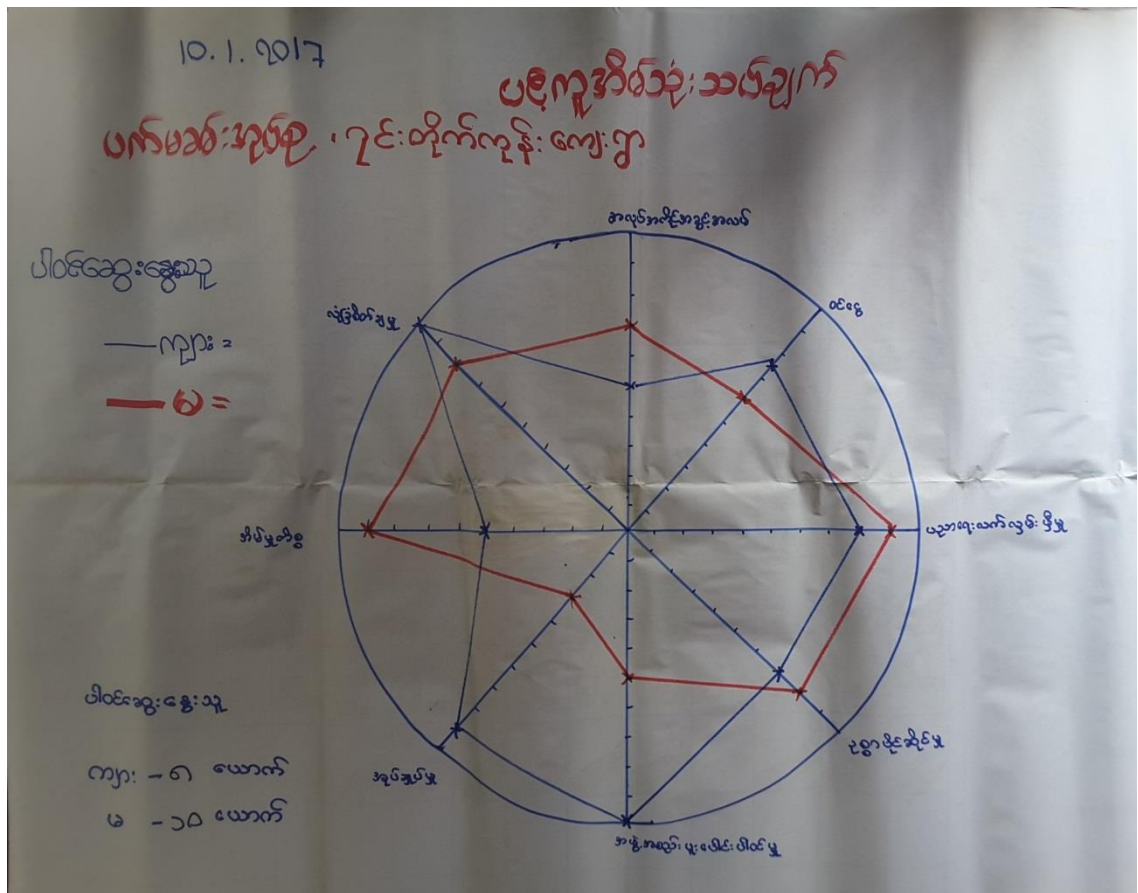 10.1.2017
ပင့်ကူအိမ်သုံးသပ်ချက်
ဖက်မခမ်းအုပ်စု၊ ၇င်းတိုက်ကုန်းကျေးရွာ
အလုပ်အကိုင်အခွင့်အလမ်း
ဝင်ငွေ
ပညာရေးလက်လှမ်းမှီမှု
ဥစ္စာပိုင်ဆိုင်မှု
အဖွဲ့အစည်းပူးပေါင်းပါဝင်မှု
အုပ်ချုပ်မှု
အိမ်မှုကိစ္စ
လုံခြုံစိတ်ချမှု
ပါဝင်ဆွေးနွေးသူ
ကျား =
မ =
ပါဝင်ဆွေးနွေးသူ
ကျား - ၈ ယောက်
မ - ၁၀ ယောက်